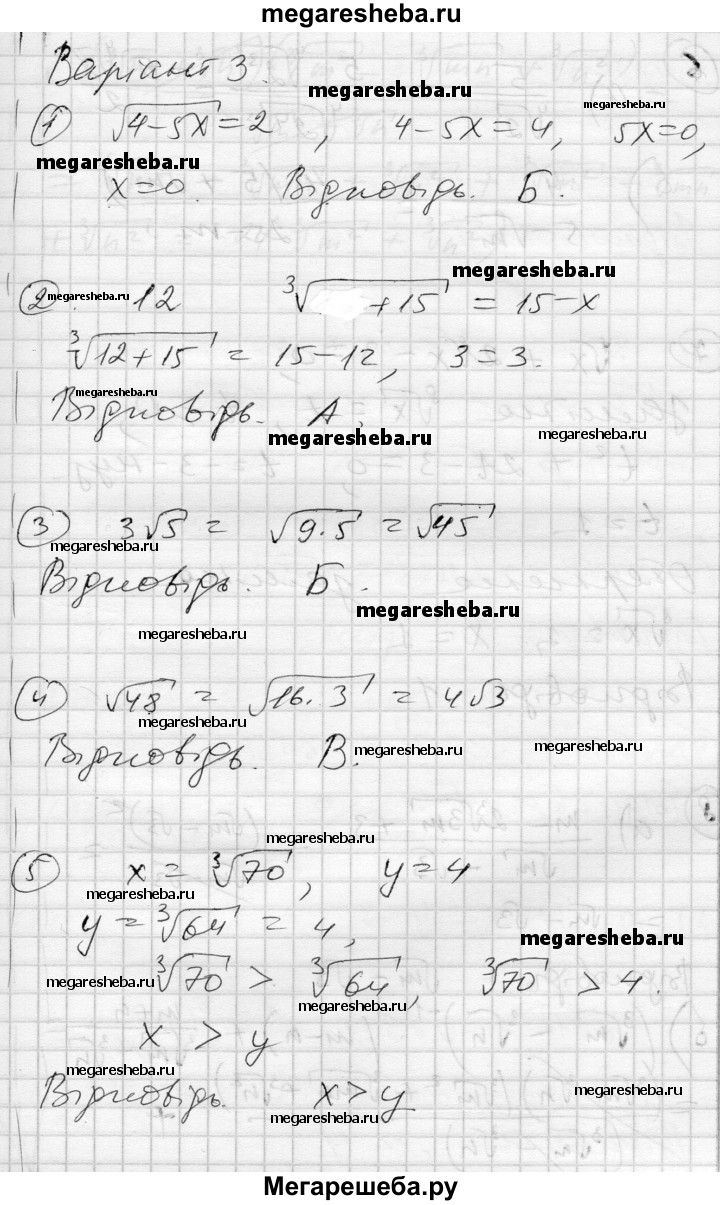 megaresheba.ru
Варіант 3.
megaresheba.ru
① √4-5x = 2, 4-5x=4, 5x=0,
megaresheba.ru
megaresheba.ru
x=0. Відповідь. Б.
megaresheba.ru
② . 12 ∛ +15 = 15-x
megaresheba.ru
∛12+15 = 15-12, 3=3.
megaresheba.ru
Відповідь. А.
megaresheba.ru
megaresheba.ru
③ 3√5 = √9·5 = √45
megaresheba.ru
Відповідь. Б.
megaresheba.ru
megaresheba.ru
④ √48 = √16·3 = 4√3
megaresheba.ru
Відповідь. В.
megaresheba.ru
megaresheba.ru
megaresheba.ru
⑤ x = ∛70, y=4
megaresheba.ru
y = ∛64 = 4,
megaresheba.ru
∛70 > ∛64, ∛70 > 4.
megaresheba.ru
megaresheba.ru
x > y
megaresheba.ru
Відповідь. x>y
megaresheba.ru
megaresheba.ru
Мегарешеба.ру